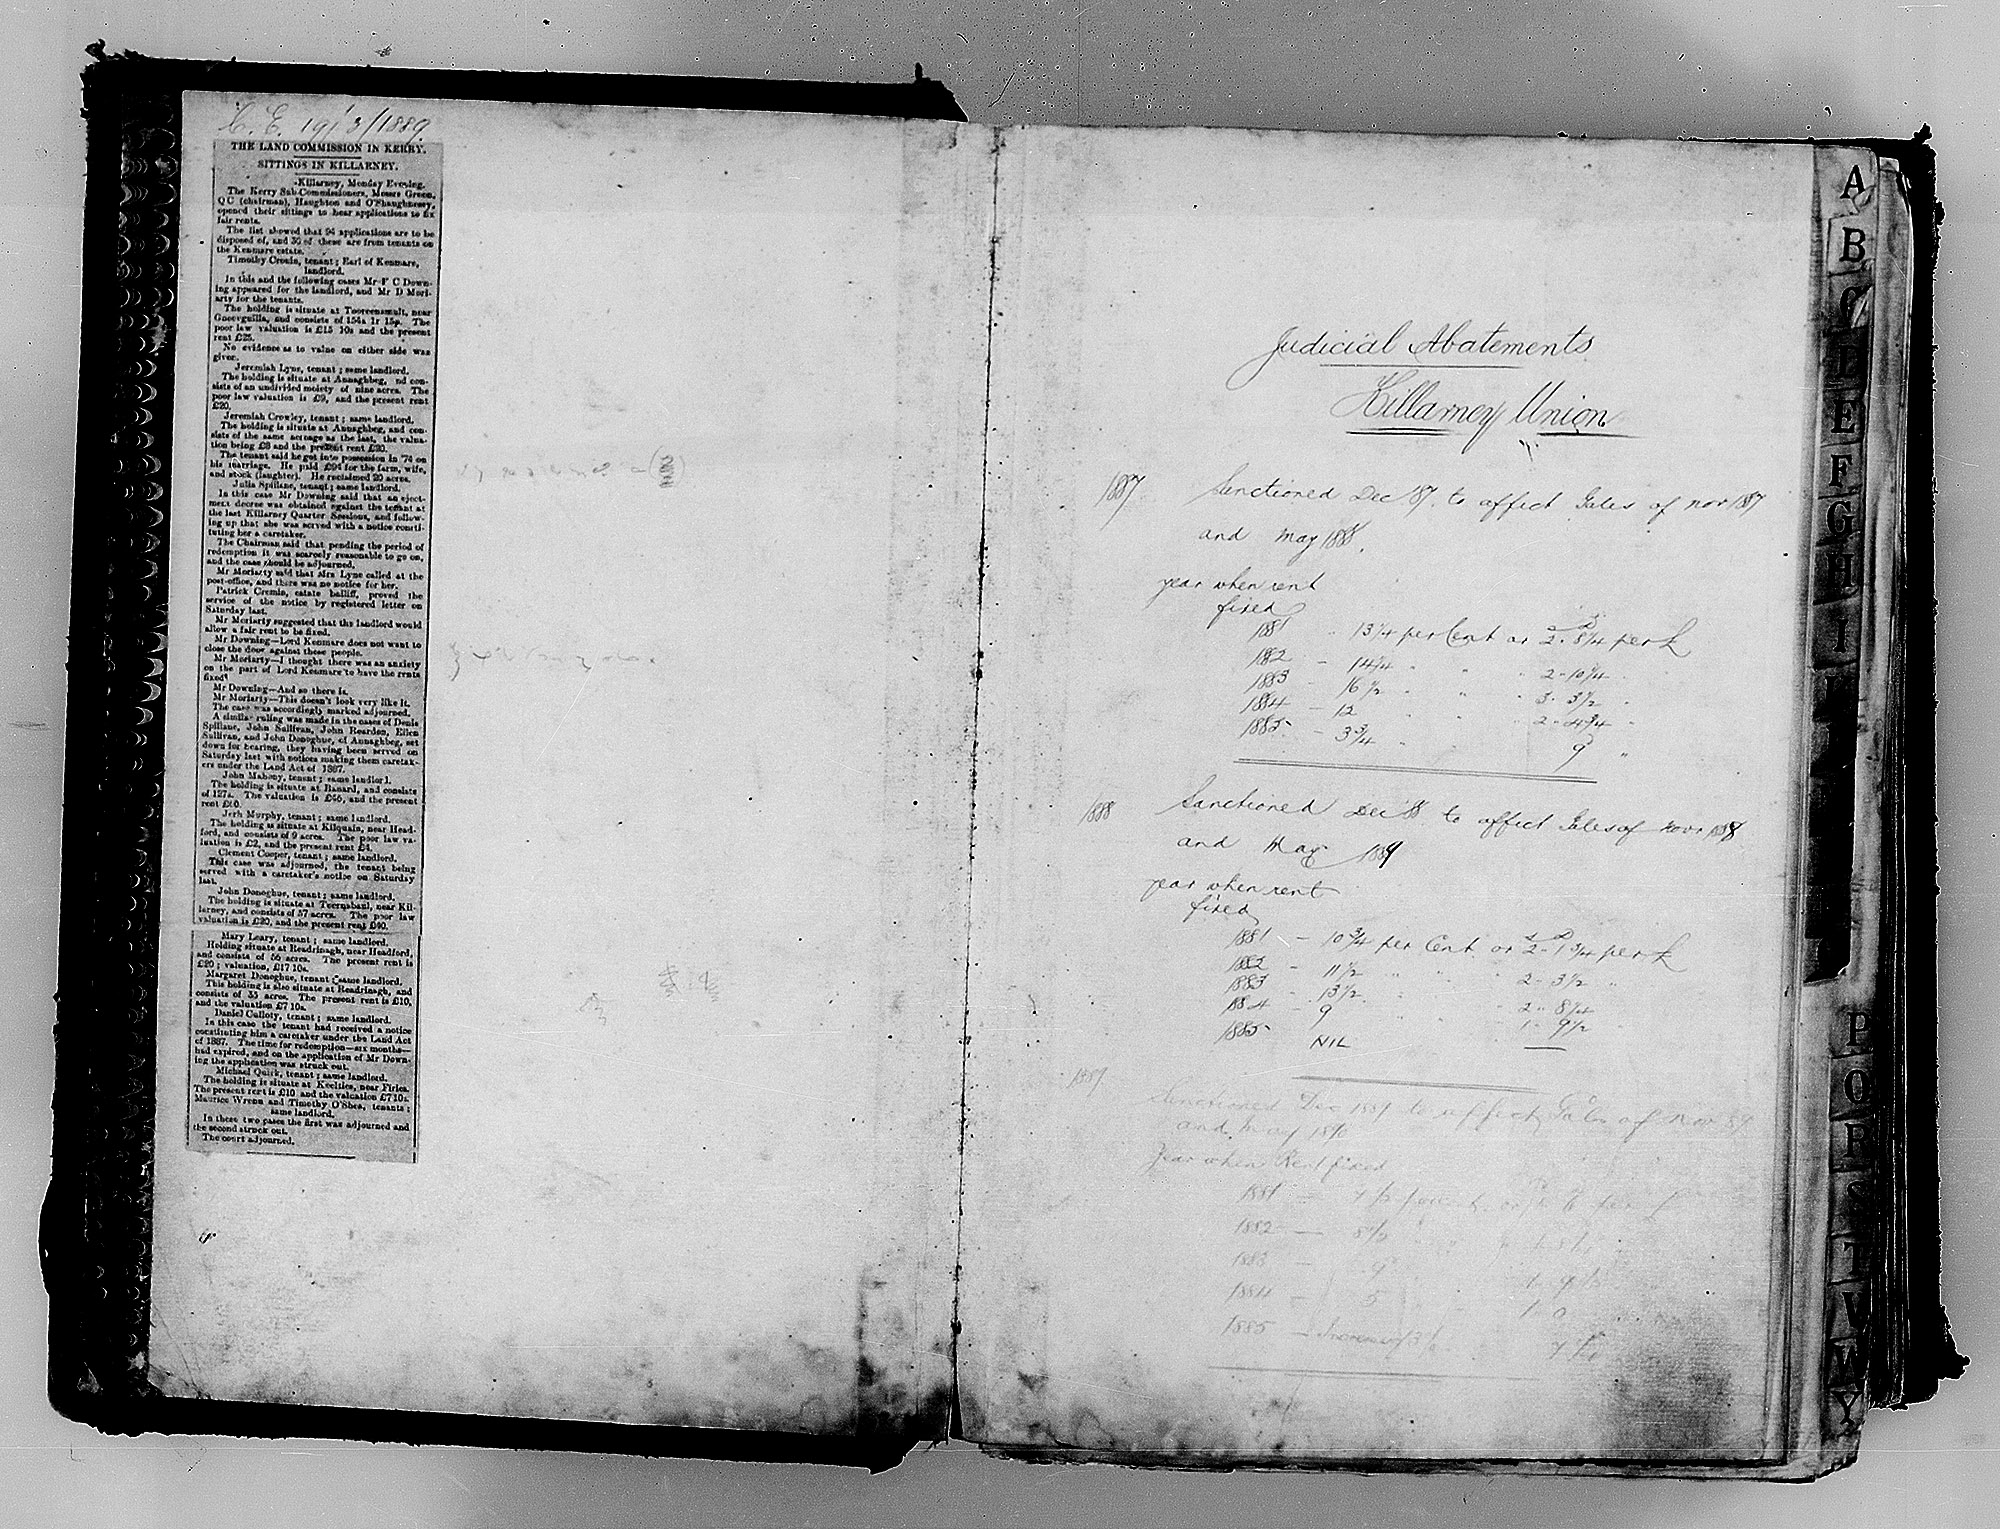 C. E. 19/3/1889
THE LAND COMMISSION IN KERRY.
SITTINGS IN KILLARNEY.
Killarney, Monday Evening.
The Kerry Sub-Commissioners, Messrs Green,
Q C (chairman), Haughton and O'Shaughnessy,
opened their sittings to hear applications to fix
fair rents.
The list showed that 94 applications are to be
disposed of, and 30 of these are from tenants on
the Kenmare estate.
Timothy Cronin, tenant; Earl of Kenmare,
landlord.
In this and the following cases Mr F C Down-
ing appeared for the landlord, and Mr D Mori-
arty for the tenants.
The holding is situate at Tooreenamult, near
Gneevguilla, and consists of 154a 1r 15p. The
poor law valuation is £15 10s and the present
rent £25.
No evidence as to value on either side was
given.
Jeremiah Lyne, tenant; same landlord.
The holding is situate at Annaghbeg, nd con-
sists of an undivided moiety of nine acres. The
poor law valuation is £9, and the present rent
£20.
Jeremiah Crowley, tenant; same landlord.
The holding is situate at Annaghbeg, and con-
sists of the same acreage as the last, the valua-
tion being £8 and the present rent £20.
The tenant said he got into possession in '74 on
his marriage. He paid £94 for the farm, wife,
and stock (laughter). He reclaimed 20 acres.
Julia Spillane, tenant; same landlord.
In this case Mr Downing said that an eject-
ment decree was obtained against the tenant at
the last Killarney Quarter Sessions, and follow-
ing up that she was served with a notice consti-
tuting her a caretaker.
The Chairman said that pending the period of
redemption it was scarcely reasonable to go on,
and the case should be adjourned.
Mr Moriarty said that Mrs Lyne called at the
post-office, and there was no notice for her.
Patrick Cremin, estate bailiff, proved the
service of the notice by registered letter on
Saturday last.
Mr Moriarty suggested that the landlord would
allow a fair rent to be fixed.
Mr Downing—Lord Kenmare does not want to
close the door against these people.
Mr Moriarty—I thought there was an anxiety
on the part of Lord Kenmare to have the rents
fixed
Mr Downing—And so there is.
Mr Moriarty—This doesn't look very like it.
The case was accordingly marked adjourned.
A similar ruling was made in the cases of Denis
Spillane, John Sullivan, John Reardon, Ellen
Sullivan, and John Donoghue, of Annaghbeg, set
down for hearing, they having been served on
Saturday last with notices making them caretak-
ers under the Land Act of 1887.
John Mahony, tenant; same landlord.
The holding is situate at Banard, and consists
of 127a. The valuation is £45, and the present
rent £40.
Jerh Murphy, tenant; same landlord.
The holding is situate at Kilquain, near Head-
ford, and consists of 9 acres. The poor law va-
luation is £2, and the present rent £4.
Clement Cooper, tenant; same landlord.
This case was adjourned, the tenant being
served with a caretaker's notice on Saturday
last.
John Donoghue, tenant; same landlord.
The holding is situate at Teernabaul, near Kil-
larney, and consists of 37 acres. The poor law
valuation is £20, and the present rent £40.
Mary Leary, tenant; same landlord.
Holding situate at Readrinagh, near Headford,
and consists of 56 acres. The present rent is
£20; valuation, £17 10s.
Margaret Donoghue, tenant; same landlord.
This holding is also situate at Readrinagh, and
consists of 33 acres. The present rent is £10,
and the valuation £7 10s.
Daniel Culloty, tenant; same landlord.
In this case the tenant had received a notice
constituting him a caretaker under the Land Act
of 1887. The time for redemption—six months—
had expired, and on the application of Mr Down-
ing the application was struck out.
Michael Quirk, tenant; same landlord.
The holding is situate at Keelties, near Firies.
The present rent is £10 and the valuation £7 10s.
Maurice Wrenn and Timothy O'Shea, tenants;
same landlord.
In these two cases the first was adjourned and
the second struck out.
The court adjourned.
Judicial Abatements
Killarney Union
1887 Sanctioned Dec '87. to affect Gales of Nov 1887
and May 1888.
year when rent
fixed
1881 - 13 1/4 per Cent or 2 - 8 1/4 per £
1882 - 14 1/4 " " " 2 - 10 1/4 "
1883 - 16 1/2 " " " 3 - 3 1/2 "
1884 - 12 " " " 2 - 4 3/4 "
1885 - 3 3/4 " 9 "
1888 Sanctioned Dec '88 to affect Gales of Nov 1888
and May 1889
year when rent
fixed
1881 - 10 3/4 per Cent or 2 - 1 3/4 per £
1882 - 11 1/2 " " " 2 - 3 1/2 "
1883 - 13 1/2 " " 2 - 8 1/4
1884 - 9 " " 1 - 9 1/2 "
1885 - NIL
1889
Sanctioned Dec 1889 to affect Gales of Nov 89
and May 1890
Year when Rent fixed
1881 — 7 1/2 per £
1882 — 8 1/2
1883 — 9
1884 — 5 1 - 0
1885 — Increase of 3
A
B
C
E
F
G
H
I
P
W
Y